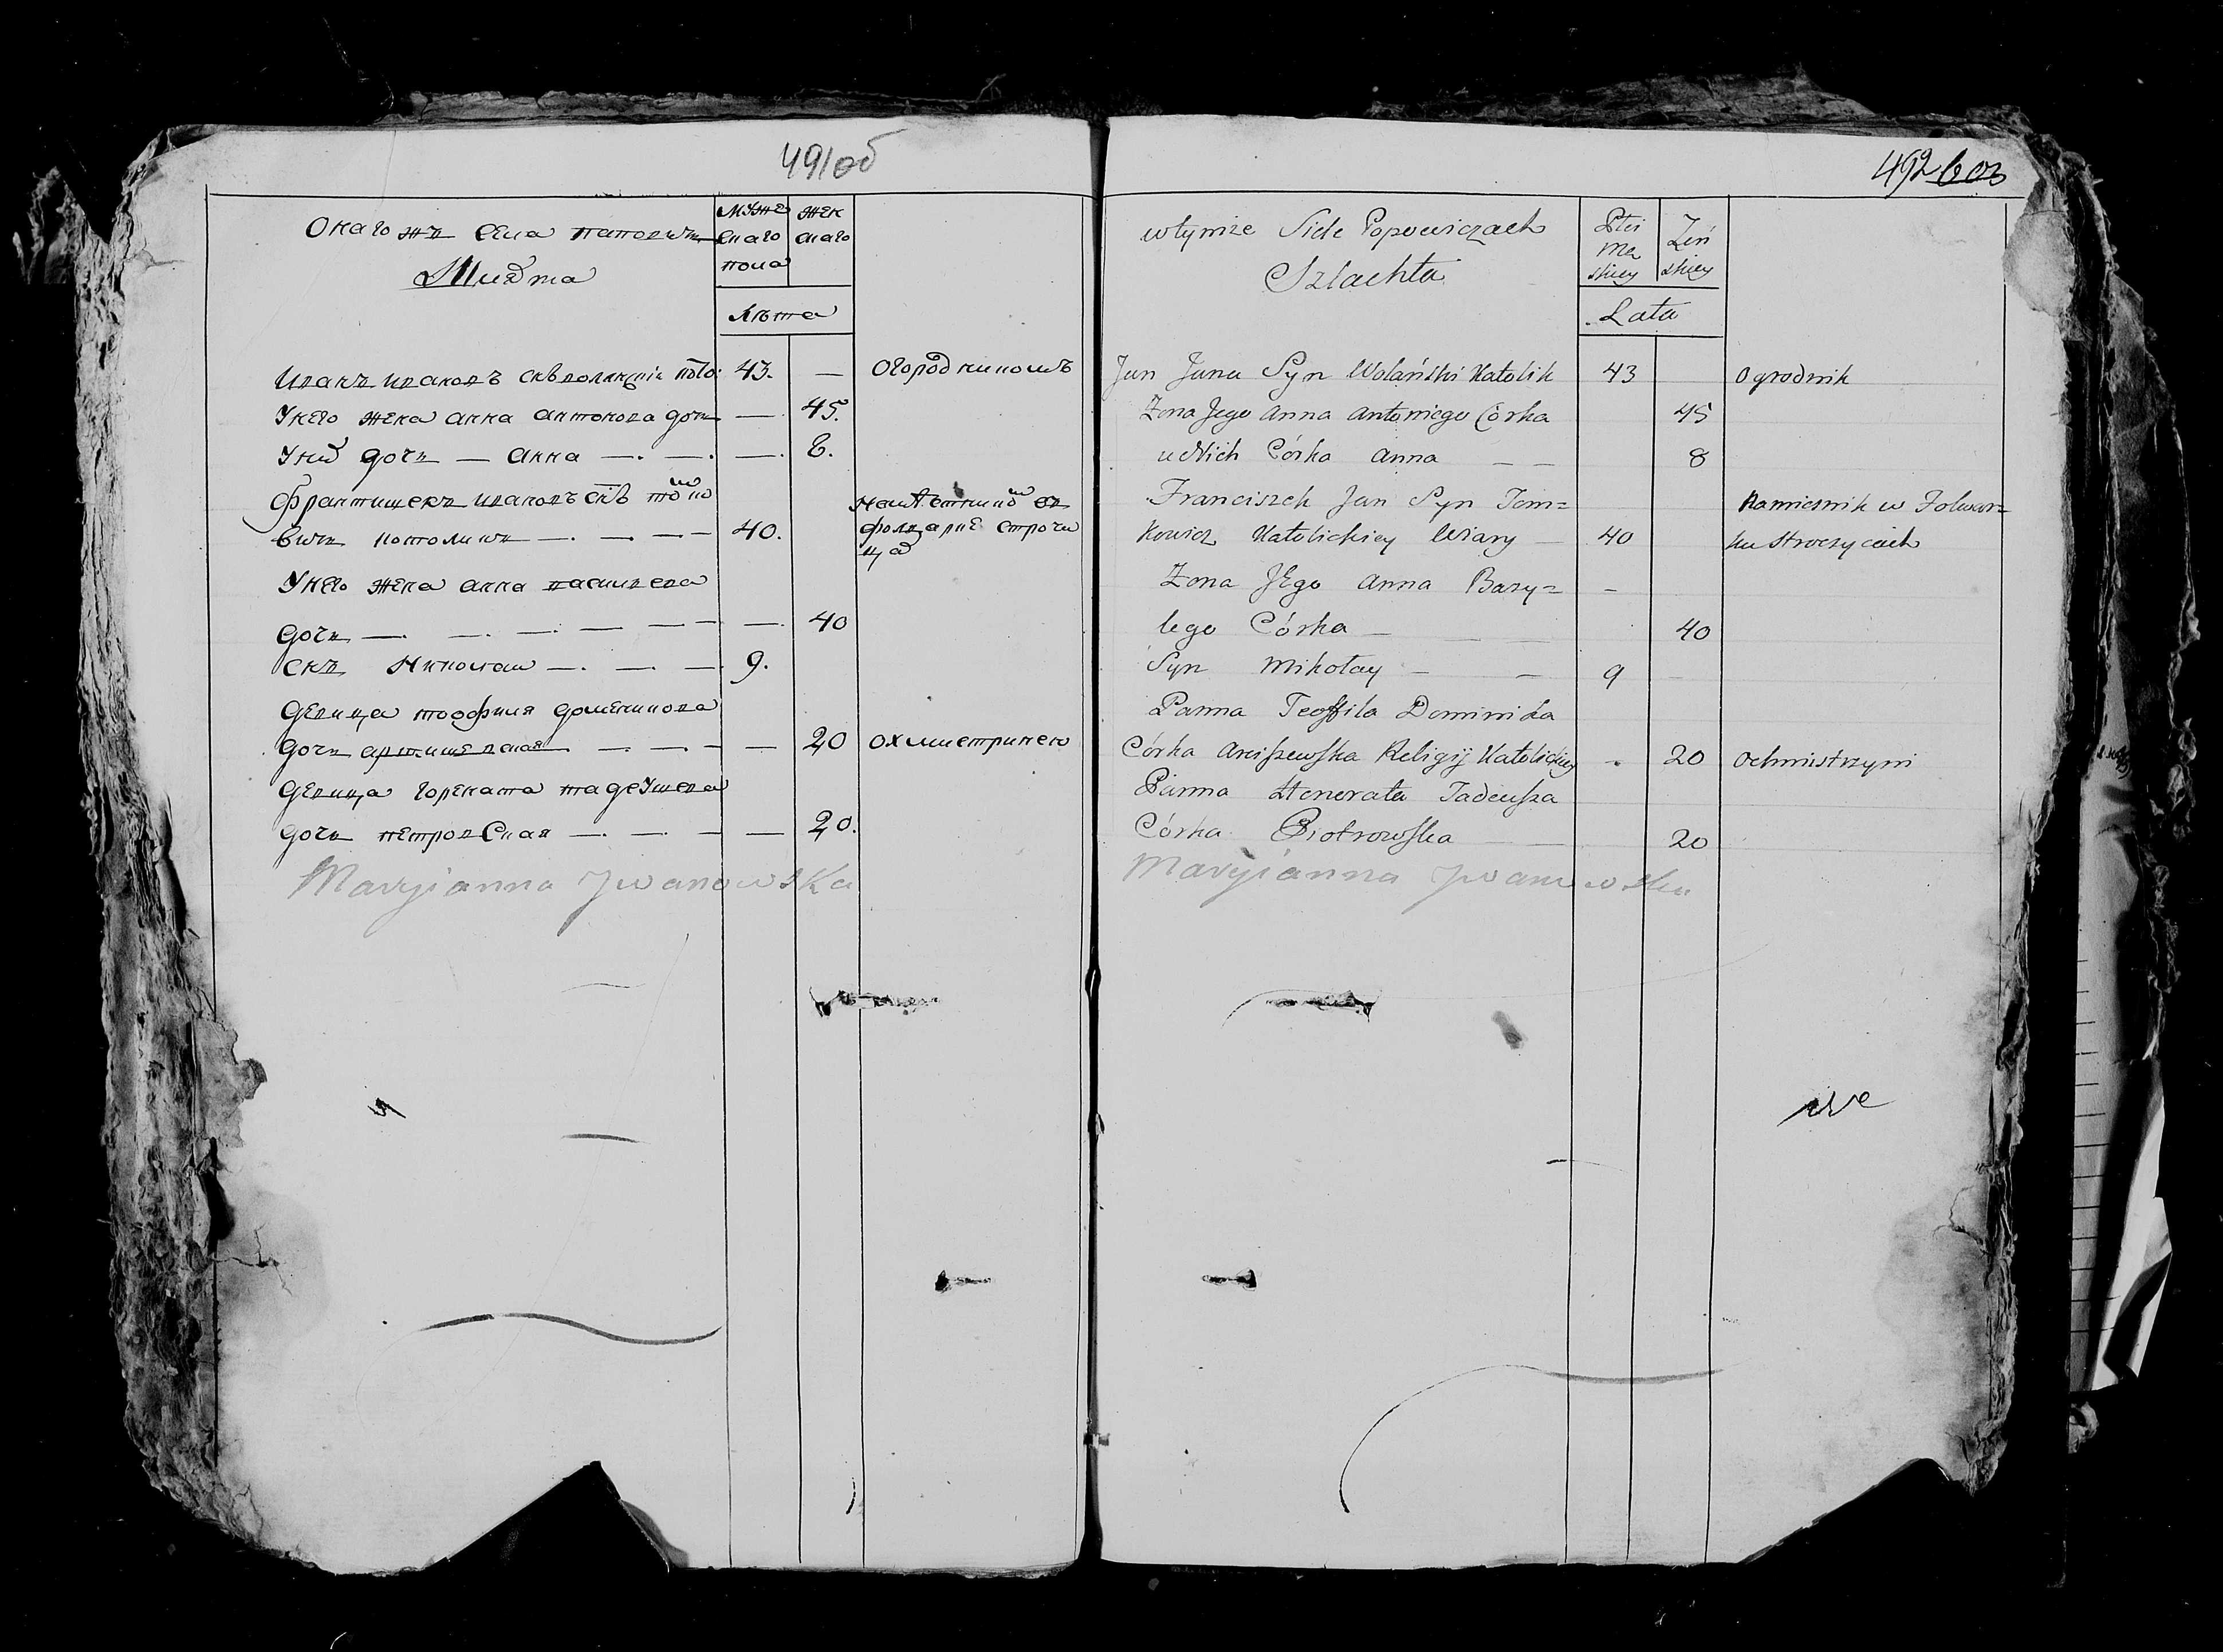 491об
Онаго жъ села поповичъ
Шляхта
мужескаго пола
женскаго
Лѣта
Иванъ ивановъ снъ волянскій като: 43. — огородникомъ
У него жена анна антонова дочь — 45.
У них дочь — анна — — — 8.
Францишекъ ивановъ снъ томко
вичъ католикъ — — — 40. намѣстник въ
фольварке строчи
цах
У него жена анна васильева
дочь — — — — — — 40
снъ Николай — — — 9.
Девица теофиля доменикова
дочь арцишевская — — — — 20 охмистринею
Девица гонората тадеушева
дочь петровская — — — — 20.
Maryjanna Jwanowska
492 603
w tymże Siele Popowiczach
Szlachta
Płci Męskiey
Żeńskiey
Lata
Jan Jana Syn Wolański Katolik 43 Ogrodnik
Żona Jego Anna Antoniego Córka 45
u Nich Córka Anna — — 8
Franciszek Jan Syn Tom=
kowicz Katolickiey Wiary — 40 Namiesnik w Folwar=
ku Stroczycach
Żona Jego Anna Bazy= —
lego Córka — — — 40
Syn Mikołay — — 9
Panna Teoffila Dominika
Córka Arciszewska Religij Katolickiey 20 Ochmistrzyni
Panna Honorata Tadeusza
Córka Piotrowska — — 20
Maryjanna Jwanowska